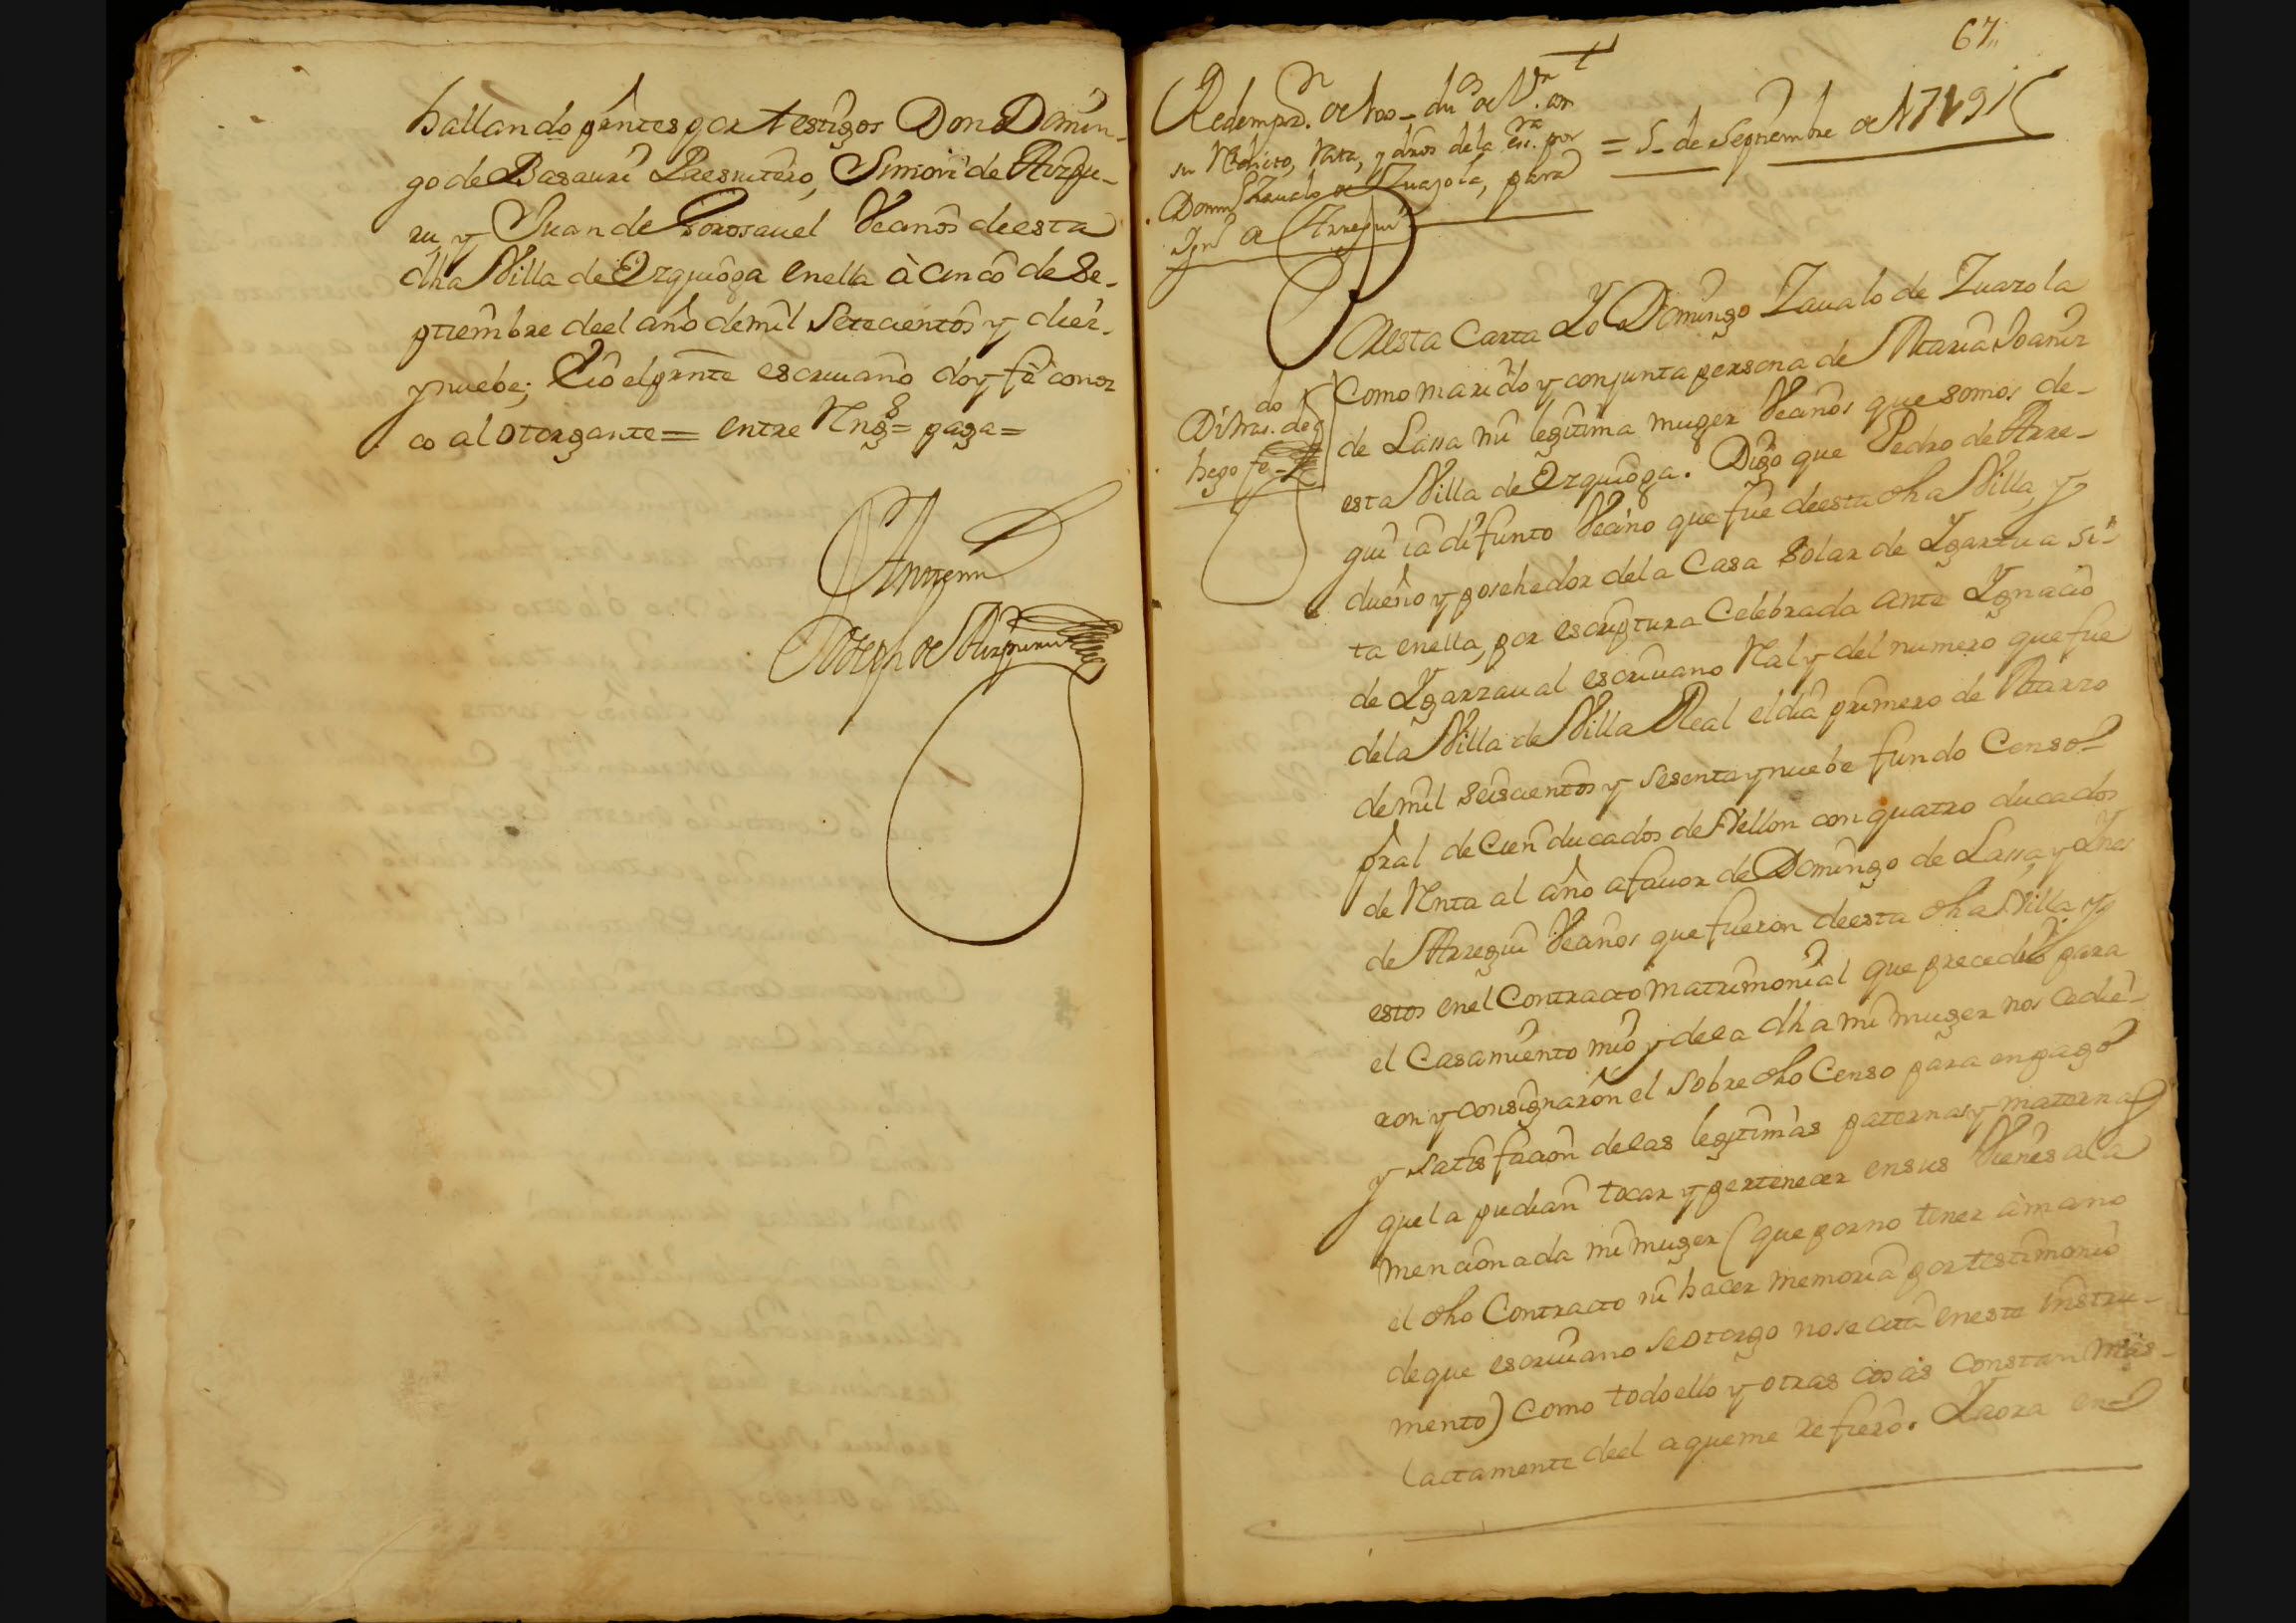 hallando p̃ntes por testigos Don Domin-
go de Basauri Presuitero, Simon de Aizpu-
ru, y Juan de Gorosauel Veanos de esta
dha Villa de Ezquioga en ella à cinco de Se-
ptiembre de el año de mil Setecientos y diez
y nuebe; E io el pr̃nte escriuano doy fè conoz
co al otorgante = entre Rng.s = paga =
Arregui
Joseph de Aizpuru
67
Redempz.n de 100_ du.os de V.on
su Redicto, Rata, y dros de la ess.ra por
Dom.o Zaualo de Zuazola, para
Ign.o de Arregui
= 5_ de Septiembre de 1719
En esta Carta Yo Domingo Zaualo de Zuazola
Como marido y conjunta persona de Maria Joaniz
de Lassa mi legitima muger Veanos que somos de
esta Villa de Ezquioga. Digo que Pedro de Arre-
gui ia difunto Veano que fue de esta dha Villa, y
dueño y posehedor de la Casa Solar de Ygartua si-
ta en ella, por escriptura Celebrada ante Ygnacio
de Ygarzaual escriuano Real y del numero que fue
de la Villa de Villa Real el dia primero de Marzo
de mil seiscientos y sesenta y nuebe fundo Censo
pral de Cien ducados de Vellon con quatro ducados
de Renta al año a fauor de Domingo de Lassa, y Ynes
de Arregui Veanos que fueron de esta dha Villa y
estos en el Contracto matrimonial que precediò para
el Casamiento mio y de la dha mi muger nos cedie-
ron y consignaron el sobre dho Censo para en pago
y satisfacion de las legitimas paternas y maternas
que la pudian tocar y pertenecer en sus Vienes a la
mencionada mi muger (que por no tener à mano
el dho Contracto ni hacer memoria por testimonio
de que escriuano se otorgo no se cita en este instru-
mento) Como todo ello y otras cosas constan mas
lactamente de el a que me refiero. Y aora en
do
Di tras.
hago fè